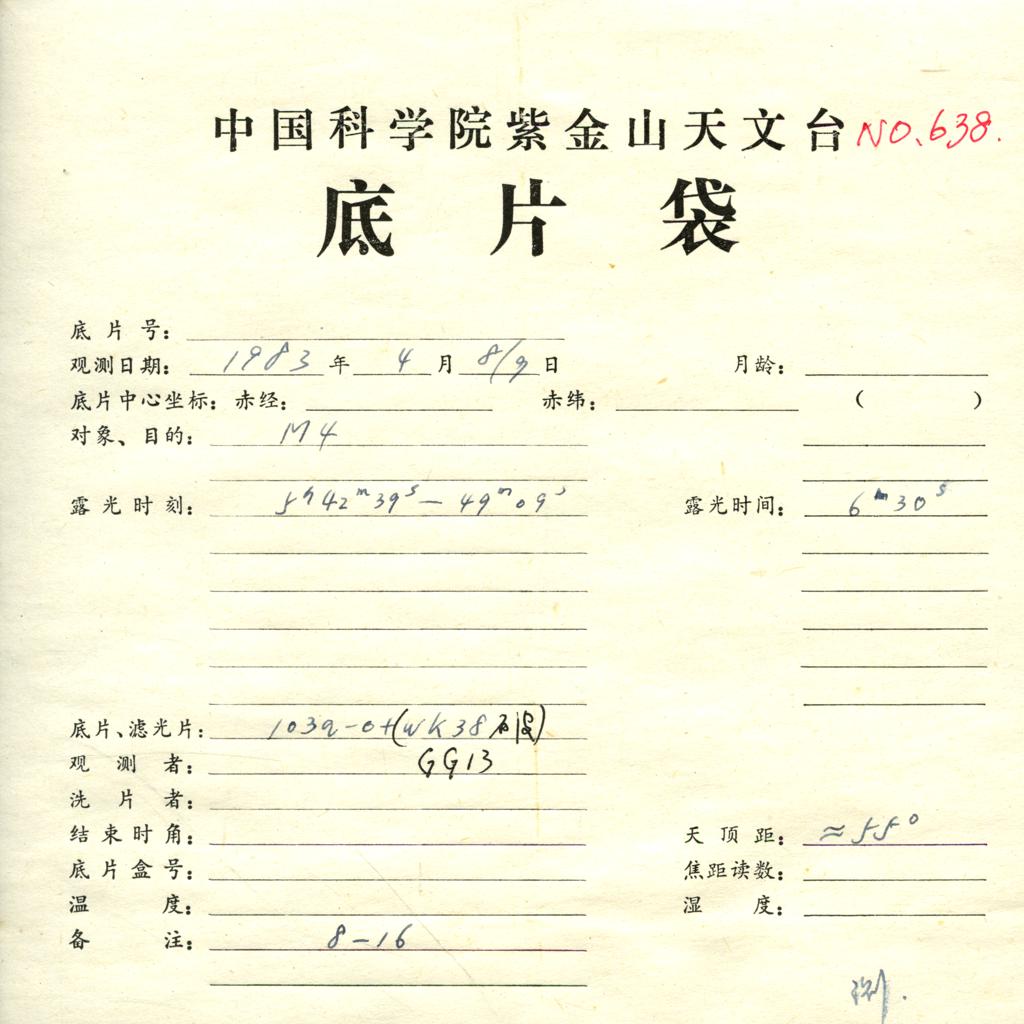 中国科学院紫金山天文台 NO.638.
底片袋
底片号:
观测日期: 1983年 4月 8/9日 月龄:
底片中心坐标: 赤经: 赤纬: ( )
对象、目的: M4
露光时刻: 5h42m39s — 49m09s 露光时间: 6m30s
底片、滤光片: 103a-O+(WK38
观测者: GG13
洗片者:
结束时角: 天顶距: ≈55°
底片盒号: 焦距读数:
温度: 湿度:
备注: 8-16